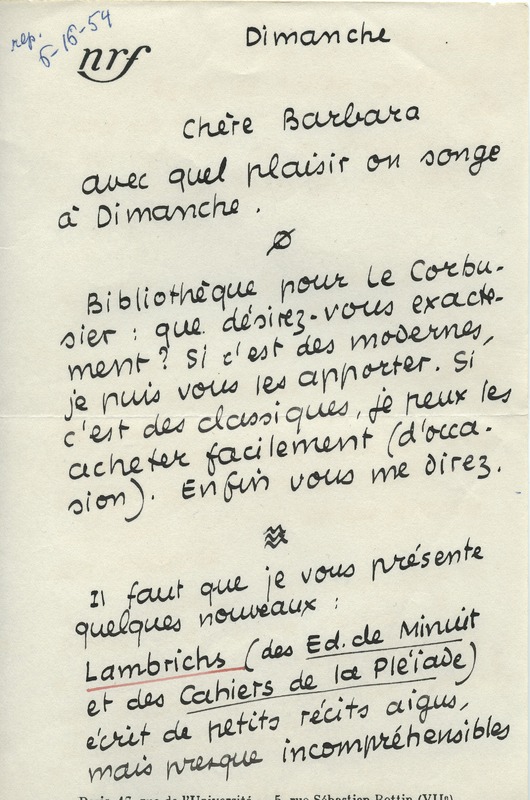 rep. 6-16-54
nrf
Dimanche
Chère Barbara
avec quel plaisir on songe
à Dimanche.
Bibliothèque pour Le Corbu-
sier : que désirez-vous exacte-
ment ? Si c'est des modernes,
je puis vous les apporter. Si
c'est des classiques, je peux les
acheter facilement (d'occa-
sion). Enfin vous me direz.
Il faut que je vous présente
quelques nouveaux :
Lambrichs (des Ed. de Minuit
et des Cahiers de la Pléiade)
écrit de petits récits aigus,
mais presque incompréhensibles
Paris 43, rue de l'Université — 5, rue Sébastien-Bottin (VIIe)